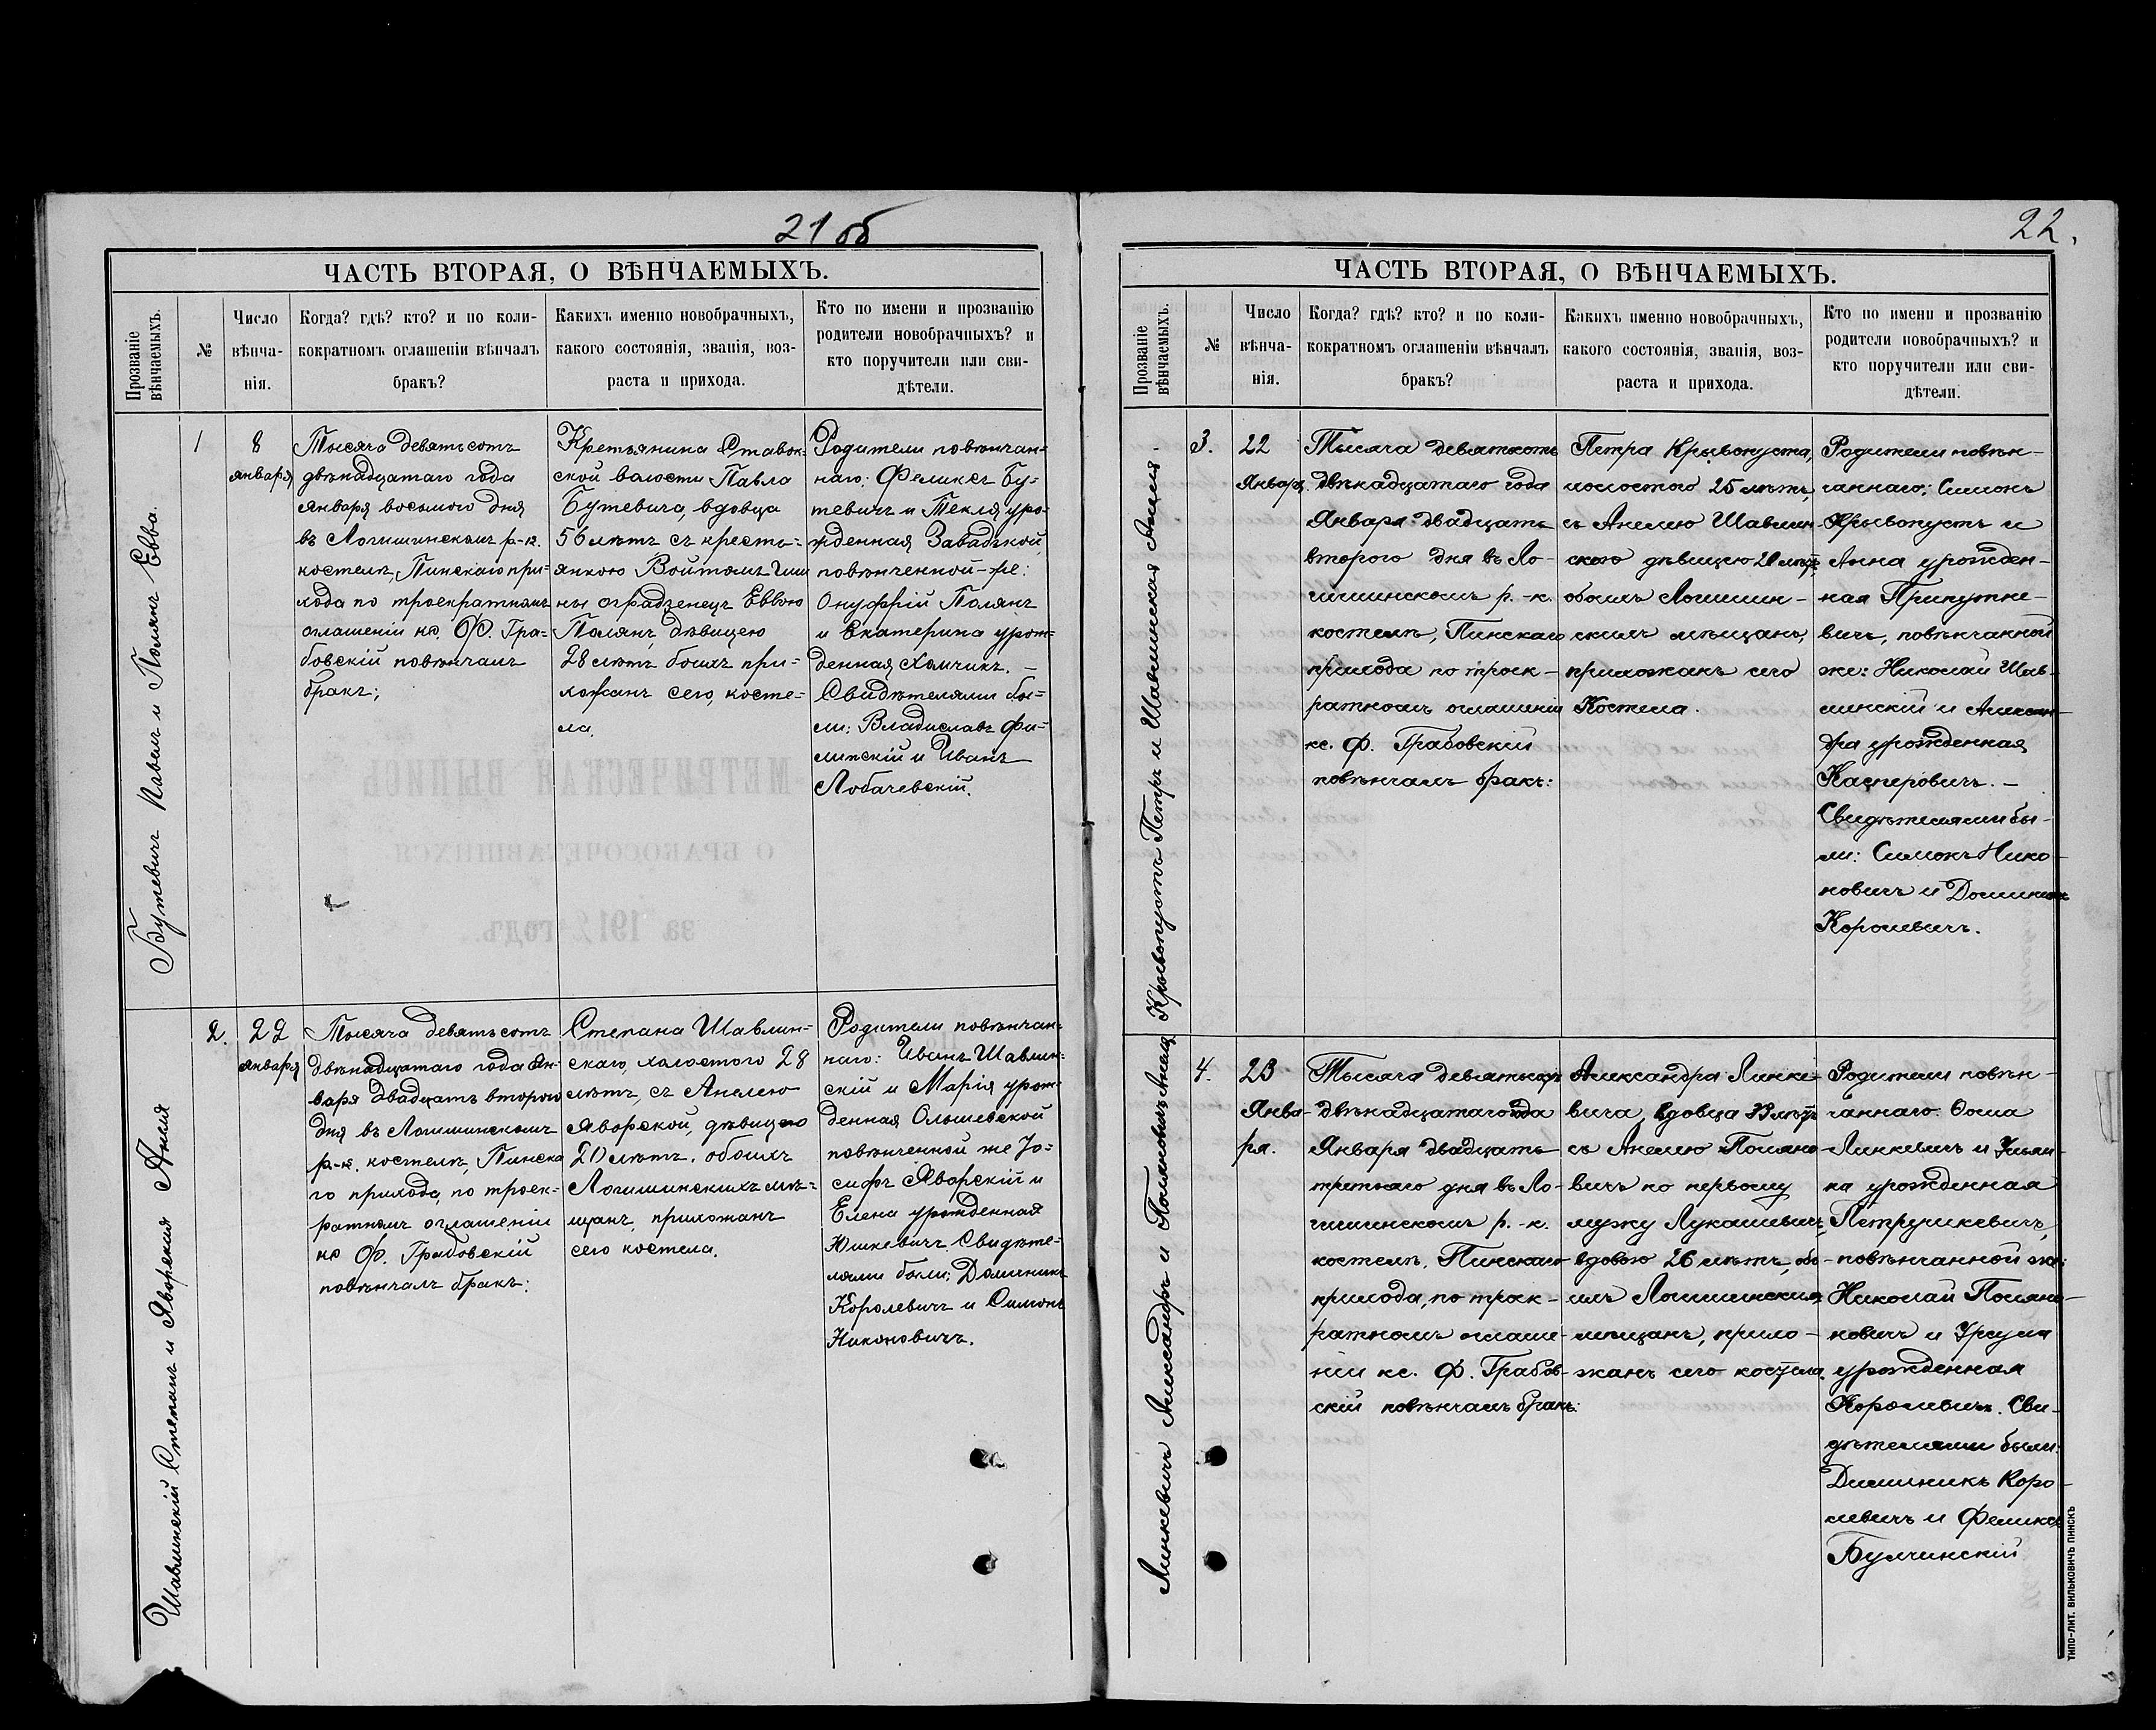 21 об
ЧАСТЬ ВТОРАЯ, О ВѢНЧАЕМЫХЪ.
Прозваніе
вѣнчаемыхъ.
№
Число
вѣнча-
нія.
Когда? гдѣ? кто? и по коли-
кократномъ оглашеніи вѣнчалъ
бракъ?
Какихъ именно новобрачныхъ,
какого состоянія, званія, воз-
раста и прихода.
Кто по имени и прозванію
родители новобрачныхъ? и
кто поручители или сви-
дѣтели.
Бутевичъ Павелъ и Полянъ Евва.
1
8
января
Тысяча девятьсотъ
двѣнадцатаго года
января восьмого дня
въ Логишинскомъ р.-к.
костелѣ, Пинскаго при-
хода по троекратномъ
оглашеніи кс. Ф. Гра-
бовскій повѣнчалъ
бракъ;
Кретьянина Ставок-
ской волости Павла
Бутевича, вдовца
56 лѣтъ съ кресть-
янкою Войтомъ
ны огрдзенецъ Еввою
Полянъ, дѣвицею
28 лѣтъ боихъ при-
хожанъ сего, косте-
ла.
Родители повѣнчан-
наго: Феликсъ Бу-
тевичъ и Текля уро-
жденная Завадзкой,
повѣнченной-же:
Онуфрій Полянъ
и Екатерина урож-
денная Хомчикъ. —
Свидѣтелями бы-
ли: Владиславъ Фи-
липскій и Иванъ
Лобачевскій.
Шавлинскій Степанъ и Яворская Анеля
2.
22
января
Тысяча девятьсотъ
двѣнадцатаго года ян-
варя двадцать второго
дня въ Логишинскомъ
р.-к. костелѣ, Пинска
го прихода, по троек-
ратномъ оглашеніи
кс Ф. Грабовскій
повѣнчалъ бракъ:
Степана Шавлин-
скаго, холостого 28
лѣтъ, съ Анелею
Яворской, дѣвицею
20 лѣтъ. обоихъ
Логишинскихъ мѣ-
щанъ, прихожанъ
сего костела.
Родители повѣнчан-
наго: Иванъ Шавлин-
скій и Марія урож-
денная Ольшевской
повѣнченной же Іо-
сифъ Яворскій и
Елена урожденная
Юшкевичъ. Свидѣте-
лями были: Доминикъ
Королевичъ и Симонъ
Никоновичъ.
22.
ЧАСТЬ ВТОРАЯ, О ВѢНЧАЕМЫХЪ.
Прозваніе
вѣнчаемыхъ.
№
Число
вѣнча-
нія.
Когда? гдѣ? кто? и по коли-
кократномъ оглашеніи вѣнчалъ
бракъ?
Какихъ именно новобрачныхъ,
какого состоянія, званія, воз-
раста и прихода.
Кто по имени и прозванію
родители новобрачныхъ? и
кто поручители или сви-
дѣтели.
Крывопустъ Петръ и Шавлинская Анеля.
3.
22
Января.
Тысяча девятьсотъ
двѣнадцатаго года
Января двадцать
второго дня въ Ло-
гишинскомъ р.-к.
костелѣ, Пинскаго
прихода по троек-
ратномъ оглашеніи
кс. Ф. Грабовскій
повѣнчалъ бракъ:
Петра Крывопуста,
холостого 25 лѣтъ,
съ Анелею Шавлин
скою дѣвицею 20 лѣтъ,
обоихъ Логишин-
скихъ мѣщанъ,
прихожанъ сего
Костела.
Родители повѣн-
чаннаго: Симонъ
Крывопустъ и
Анна урожден-
ная Прикутне-
вичъ, повѣнчанной
же: Николай Шав-
линскій и Алексан-
дра урожденная
Касперовичъ. —
Свидѣтелями бы-
ли: Симонъ Нико-
новичъ и Доминикъ
Королевичъ.
Линкевичъ Александръ и Полховичъ Анеля
4.
23
Янва-
ря.
Тысяча девятьсотъ
двѣнадцатаго года
Января двадцать
третьяго дня въ Ло-
гишинскомъ р.-к.
костелѣ, Пинскаго
прихода, по троек-
ратномъ оглаше-
ніи кс. Ф. Грабов-
скій повѣнчалъ бракъ:
Александра Линке-
вича, вдовца 33 лѣтъ
съ Анелею Поляно-
вичъ по первому
мужу Лукашевичъ,
вдовою 26 лѣтъ, обо-
ихъ Логишинскихъ
мѣщанъ, прихо-
жанъ сего костела.
Родители повѣн-
чаннаго: Ѳома
Линкевичъ и Ульян-
на урожденная
Петрушкевичъ,
повѣнчанной же:
Николай Поляно-
новичъ и Урсула
урожденная
Королевичъ. Сви-
дѣтелями были:
Доминикъ Коро-
левичъ и Феликсъ
Булчинскій
ТИПО-ЛИТ. ВИЛЬКОВИЧЪ ПИНСКЪ